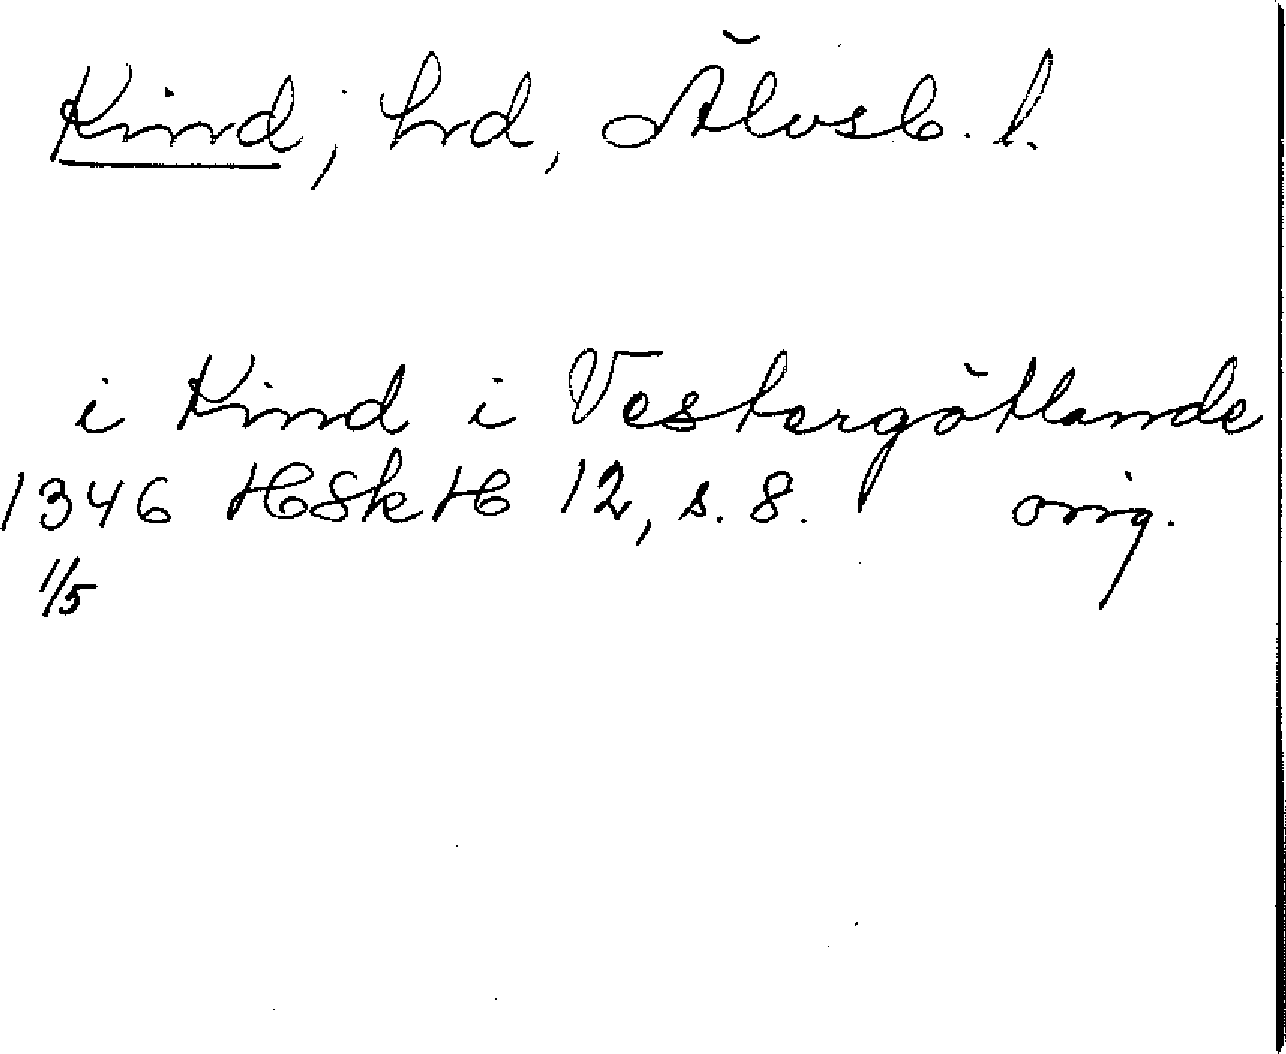 Kind, hrd, Älvsb. l.
i Kind i Vestergötlande
1346 HSkH 12, s. 8. orig.
1/5